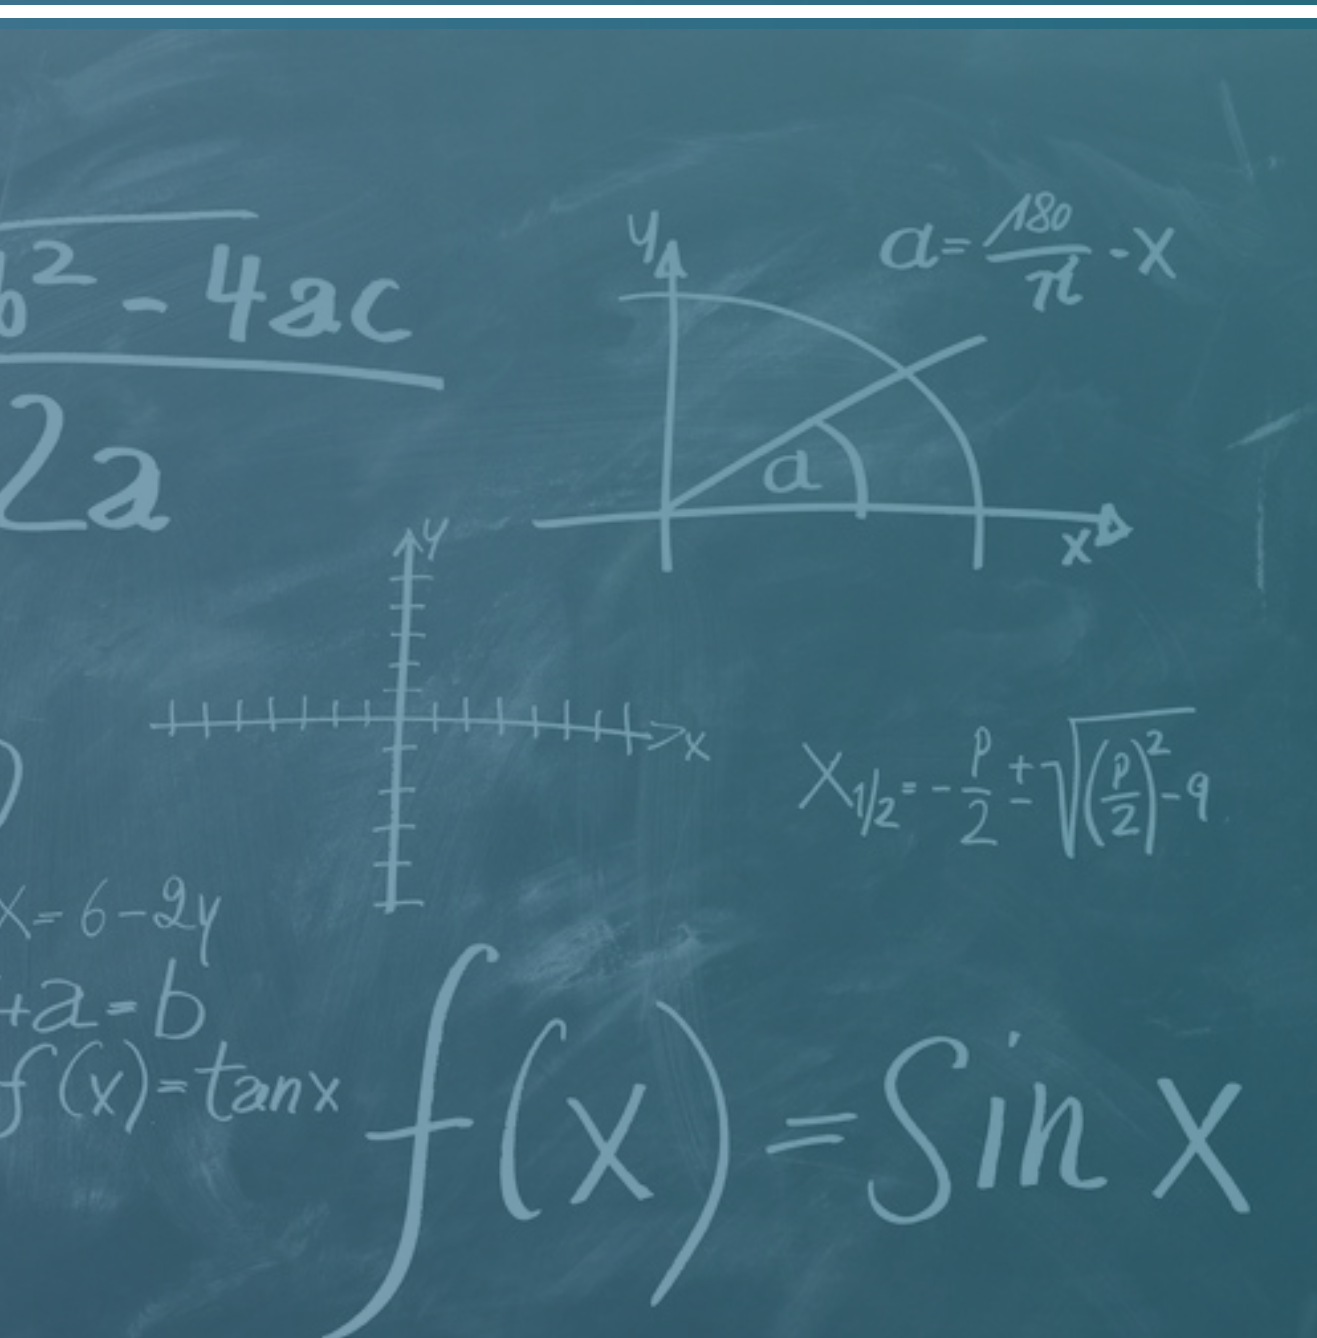 b² - 4ac
2a
y
a = 180/π · x
a
x
y
x
x₁/₂ = - p/2 ± √(p/2)² - q
x = 6 - 2y
+a = b
f(x) = tan x
f(x) = Sin x